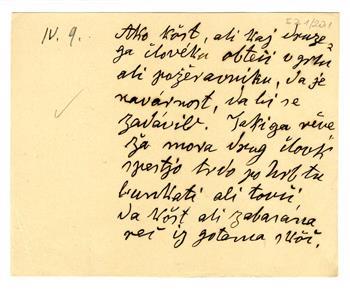 IV. 9.
EZ 1/221
Ako kòst, ali kaj druze-
ga človéku obtečí v grlu
ali požeravniku, da je
navárnost, da bi se
zadávil. Takiga réve-
ža mora drug člověk
s pestjo trdo po hrbtu
bunkati ali tovči
da kòst ali zabasána
reč iz gotama skóč.